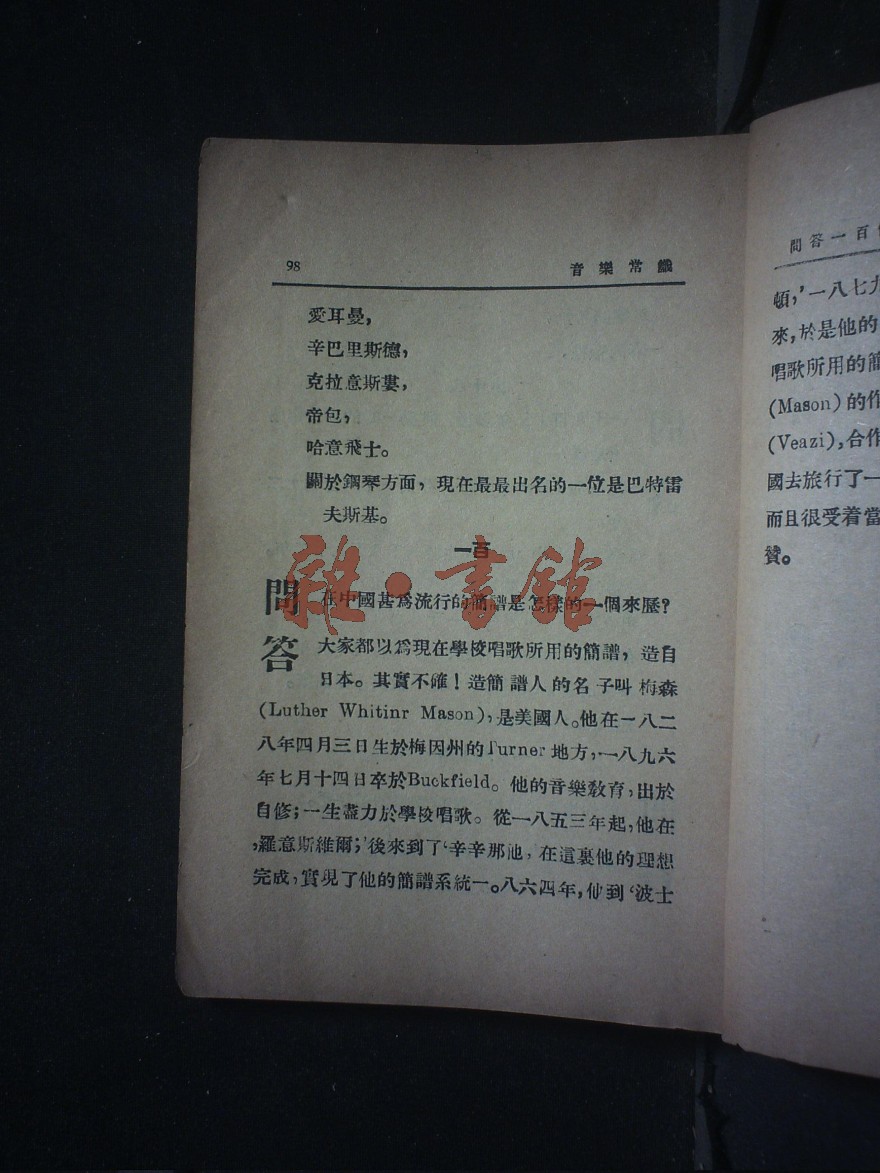 98 音樂常識
愛耳曼,
辛巴里斯德,
克拉意斯婁,
帝包,
哈意飛士。
關於鋼琴方面，現在最最出名的一位是巴特雷
夫斯基。
一百
問 在中國甚爲流行的簡譜是怎樣的一個來歷?
答 大家都以爲現在學校唱歌所用的簡譜，造自
日本。其實不確！造簡譜人的名子叫梅森
(Luther Whitinr Mason)，是美國人。他在一八二
八年四月三日生於梅因州的Turner地方，一八九六
年七月十四日卒於Buckfield。他的音樂敎育，出於
自修；一生盡力於學校唱歌。從一八五三年起，他在
‚羅意斯維爾；’後來到了‘辛辛那池，在這裏他的理想
完成，實現了他的簡譜系統一。八六四年，他到‘波士
雜·書館
問答一百
頓，’一八七九
來，於是他的
唱歌所用的簡
(Mason)的作
(Veazi)，合作
國去旅行了一
而且很受着當
贊。